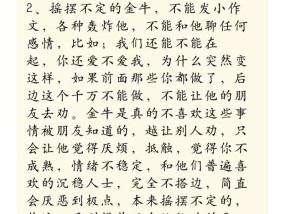 2、摇摆不定的金牛，不能发小作
文，各种轰炸他，不能和他聊任何
感情，比如；我们还能不能在
起，你还爱不爱我，为什么突然变
这样，如果前面那些你都做了，后
边这个千万不能做，不能让他的朋
友去劝。金牛是真的不喜欢这些事
情被朋友知道的，越让别人劝，只
会让他觉得厌烦，抵触，觉得你不
成熟，情绪不稳定，和他们普遍喜
欢的沉稳人士，完全不搭边，简直
会厌恶到极点，本来摇摆不定的，